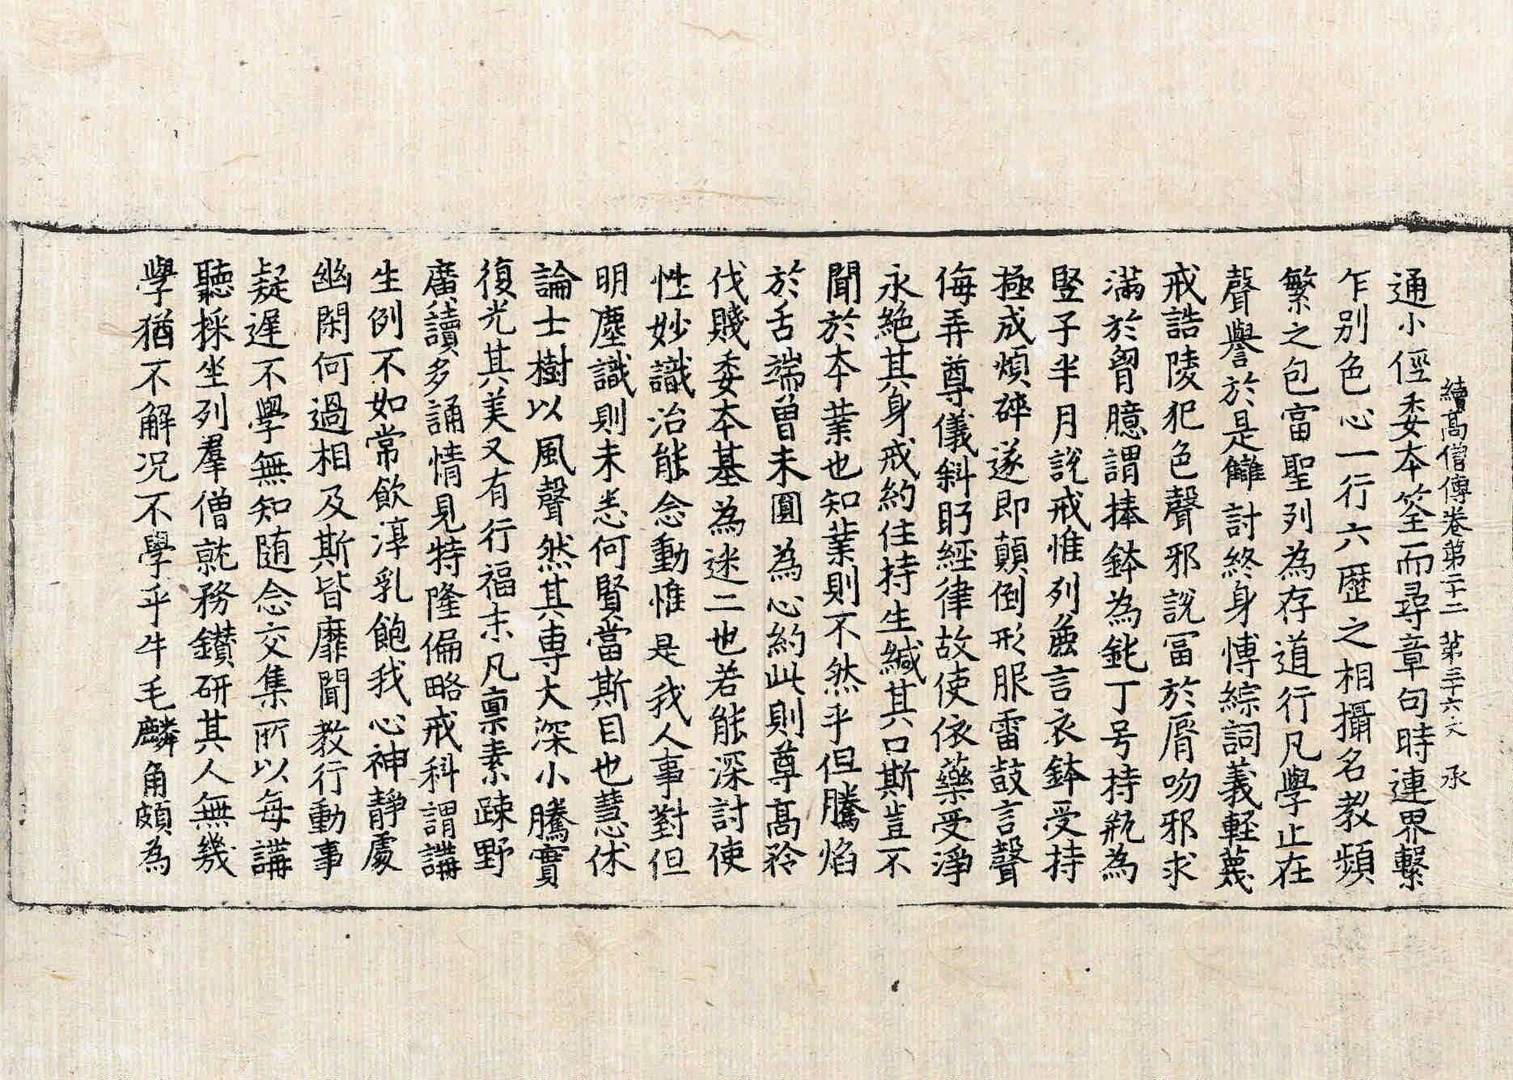 續髙僧傳卷第二十二 第三十六丈 承
通小俓委夲筌而尋章句時連界繫
乍别色心一行六歷之相攝名教頻
繁之包富聖列為存道行凡學止在
聲譽於是雠討終身愽綜詞義軽蔑
戒誥陵犯色聲邪說冨於脣吻邪求
滿於胷臆謂捧鉢為鈋丁号持瓶為
竪子半月說戒惟列數言衣鉢受持
極成煩碎遂即顛倒形服雷敼言聲
侮弄尊儀斜眄經律故使依藥受淨
永絶其身戒約住持生緘其口斯豈不
聞於夲業也知業則不然乎但騰焰
於舌端曽未圓為心約此則尊髙矜
伐賤委夲基為迷二也若能深討使
性妙識治能念動惟是我人事對但
明塵識則未悉何賢當斯目也慧休
論士樹以風聲然其専大深小騰實
復光其美又有行福末凡禀素疎野
廣讀多誦情見特隆偏略戒科謂講
生例不如常飲淳乳飽我心神靜處
幽閑何過相及斯皆靡聞教行動事
疑遅不學無知随念交集所以每講
聽採坐列羣僧就務鑚研其人無幾
學猶不解况不學乎牛毛麟角頗為